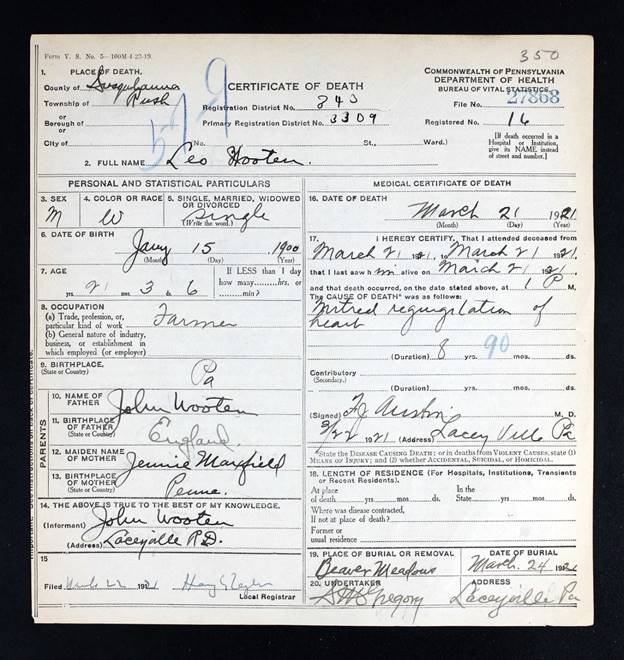 350
Form V. S. No. 5—100M-1-27-19.
1. PLACE OF DEATH.
County of Susquehanna
Township of Rush
or
Borough of
or
City of No. St., Ward.)
579
CERTIFICATE OF DEATH
Registration District No. 843
Primary Registration District No. 3309
COMMONWEALTH OF PENNSYLVANIA
DEPARTMENT OF HEALTH
BUREAU OF VITAL STATISTICS
File No. 27868
Registered No. 16
[If death occurred in a Hospital or Institution, give its NAME instead of street and number.]
2. FULL NAME Leo Wooten.
PERSONAL AND STATISTICAL PARTICULARS
3. SEX M
4. COLOR OR RACE W
5. SINGLE, MARRIED, WIDOWED OR DIVORCED (Write the word.) Single
6. DATE OF BIRTH
Jany 15 1900
(Month) (Day) (Year)
7. AGE
21 yrs. 3 mos. 6 ds.
If LESS than 1 day how many hrs. or min.?
8. OCCUPATION
(a) Trade, profession, or particular kind of work Farmer
(b) General nature of industry, business, or establishment in which employed (or employer)
9. BIRTHPLACE (State or Country) Pa
PARENTS
10. NAME OF FATHER John Wooten
11. BIRTHPLACE OF FATHER (State or Country) England.
12. MAIDEN NAME OF MOTHER Jennie Maxfield
13. BIRTHPLACE OF MOTHER (State or Country) Penna.
14. THE ABOVE IS TRUE TO THE BEST OF MY KNOWLEDGE.
(Informant) John Wooten
(Address) Laceyville R.D.
15
Filed 22 1921
Local Registrar
MEDICAL CERTIFICATE OF DEATH
16. DATE OF DEATH
March 21 1921
(Month) (Day) (Year)
17. I HEREBY CERTIFY, That I attended deceased from
March 21 1921, to March 21 1921.
that I last saw him alive on March 21 1921.
and that death occurred, on the date stated above, at 1 P M.
The CAUSE OF DEATH* was as follows:
Mitral regurgitation of
heart
(Duration) 8 yrs. 90 mos. ds.
Contributory (Secondary.)
(Duration) yrs. mos. ds.
(Signed) F J Austin M. D.
3/22 1921 (Address) Laceyville Pa
*State the DISEASE CAUSING DEATH; or in deaths from VIOLENT CAUSES, state (1) MEANS OF INJURY; and (2) whether ACCIDENTAL, SUICIDAL, or HOMICIDAL.
18. LENGTH OF RESIDENCE (For Hospitals, Institutions, Transients or Recent Residents).
At place of death yrs. mos. ds. In the State yrs. mos. ds.
Where was disease contracted, If not at place of death?
Former or usual residence
19. PLACE OF BURIAL OR REMOVAL Beaver Meadows
DATE OF BURIAL March 24 1921
20. UNDERTAKER Gregory
ADDRESS Laceyville Pa